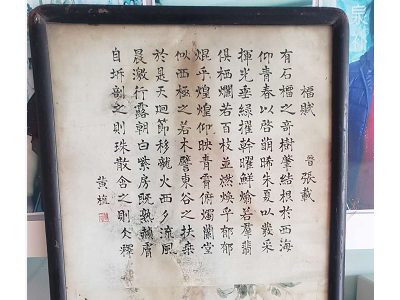 榴賦 晉張載
有石榴之奇樹肇結根於西海
仰青春以啓萌晞朱夏以發采
揮光垂綠擢幹曜鮮煥若羣翡
俱栖爛若百枝並燃煥乎郁郁
焜乎煌煌仰映青霄俯燭蘭堂
似西極之若木譬東谷之扶桑
於是天迴節移龍火西夕流風
晨激行露朝白紫房既熟赬膚
自坼剖之則珠散含之則冰釋
黃
泉